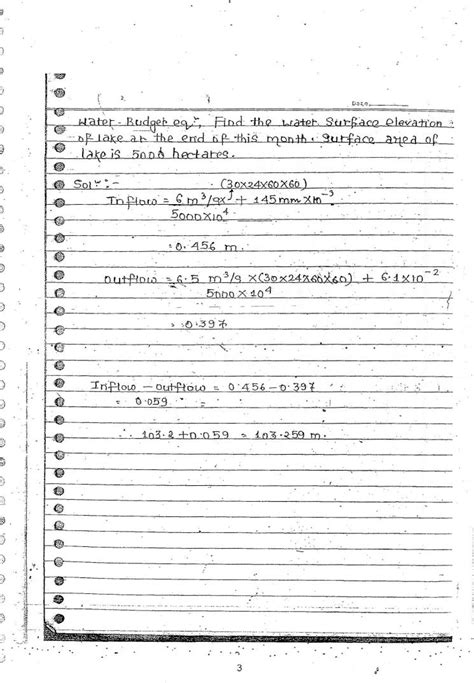 Date
Water-Budget eqn, Find the water surface elevation
of lake at the end of this month. Surface area of
lake is 5000 hectares.
Soln :-
(30x24x60x60)
Inflow = 6 m³/s x + 145mm x10⁻³
5000x10⁴
= 0.456 m.
outflow = 6.5 m³/s x(30x24x60x60) + 6.1x10⁻²
5000 x 10⁴
= 0.397
Inflow - outflow = 0.456 - 0.397
= 0.059
∴ 103.2 + 0.059 = 103.259 m.
3